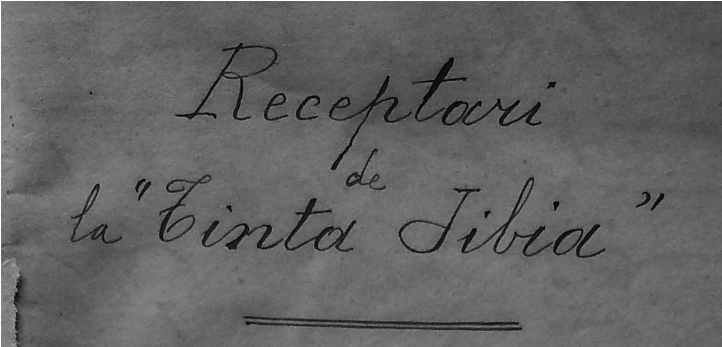 Receptari
de
la "Tinta Jibia"